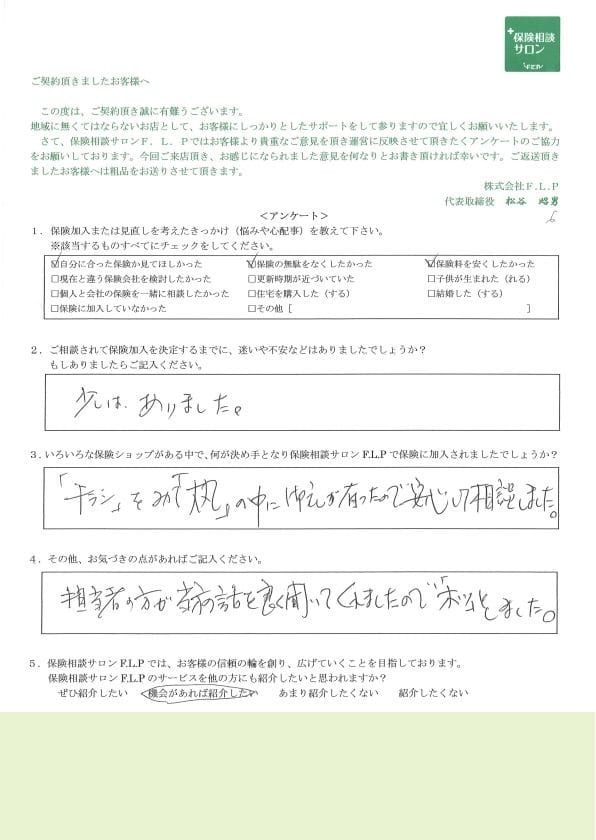 保険相談
サロン
F.L.P
ご契約頂きましたお客様へ
この度は、ご契約頂き誠に有難うございます。
地域に無くてはならないお店として、お客様にしっかりとしたサポートをして参りますので宜しくお願いいたします。
さて、保険相談サロンF．L．Pではお客様より貴重なご意見を頂き運営に反映させて頂きたくアンケートのご協力
をお願いしております。今回ご来店頂き、お感じになられました意見を何なりとお書き頂ければ幸いです。ご返送頂き
ましたお客様へは粗品をお送りさせて頂きます。
株式会社F.L.P
代表取締役 松谷 昭男
6
＜アンケート＞
１．保険加入または見直しを考えたきっかけ（悩みや心配事）を教えて下さい。
※該当するものすべてにチェックをしてください。
☑自分に合った保険か見てほしかった ☑保険の無駄をなくしたかった ☑保険料を安くしたかった
□現在と違う保険会社を検討したかった □更新時期が近づいていた □子供が生まれた（れる）
□個人と会社の保険を一緒に相談したかった □住宅を購入した（する） □結婚した（する）
□保険に加入していなかった □その他［ ］
２．ご相談されて保険加入を決定するまでに、迷いや不安などはありましたでしょうか？
もしありましたらご記入ください。
少しは、ありました。
３．いろいろな保険ショップがある中で、何が決め手となり保険相談サロンF.L.Pで保険に加入されましたでしょうか？
「チラシ」をみて「 」の中に が有ったので安心して相談しました。
４．その他、お気づきの点があればご記入ください。
担当者の方が の話を良く聞いてくれましたので しました。
５．保険相談サロンF.L.Pでは、お客様の信頼の輪を創り、広げていくことを目指しております。
保険相談サロンF.L.Pのサービスを他の方にも紹介したいと思われますか？
ぜひ紹介したい 機会があれば紹介したい あまり紹介したくない 紹介したくない